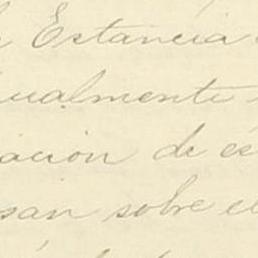 Estancia
ualmente
ación de és
san sobre el